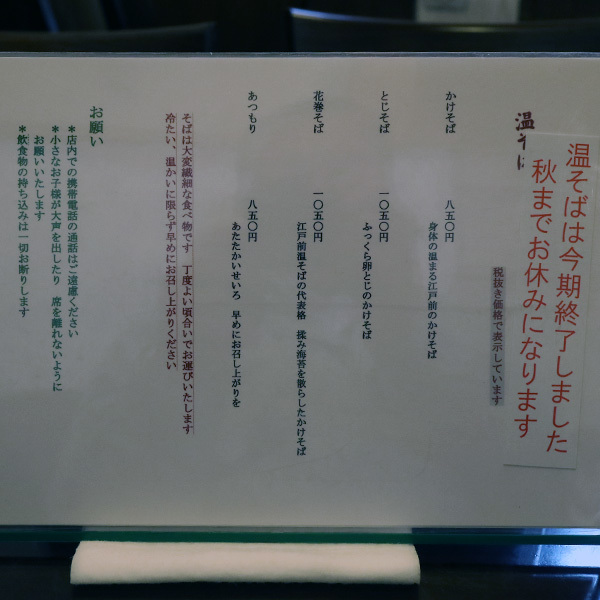 温そば
温そばは今期終了しました
秋までお休みになります
税抜き価格で表示しています
かけそば 八五〇円
身体の温まる江戸前のかけそば
とじそば 一〇五〇円
ふっくら卵とじのかけそば
花巻そば 一〇五〇円
江戸前温そばの代表格 揉み海苔を散らしたかけそば
あつもり 八五〇円
あたたかいせいろ 早めにお召し上がりを
そばは大変繊細な食べ物です 丁度よい頃合いでお運びいたします
冷たい、温かいに限らず早めにお召し上がりください
お願い
＊店内での携帯電話の通話はご遠慮ください
＊小さなお子様が大声を出したり 席を離れないように
お願いいたします
＊飲食物の持ち込みは一切お断りします